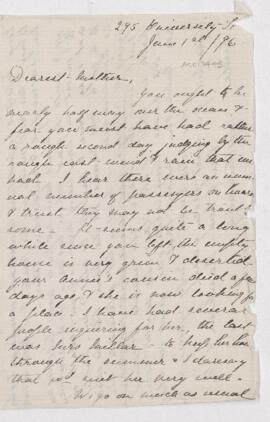 295 University St
June 1st /96
Dearest Mother,
You ought to be
nearly half way over the ocean &
fear you must have had rather
a rough second day judging by the
rough east wind & rain that we
had. I hear there were an unu-
sual number of passengers on board
& trust they may not be trouble-
some. It seems quite a long
while since you left, the empty
house is very grim & deserted.
Your Annie's cousin died a few
days ago & she is now looking for
a place. I have had several
people enquiring for her, the last
was Mrs Millar - to help her
through the summer & I daresay
that wd suit her very well.
We go on much as usual